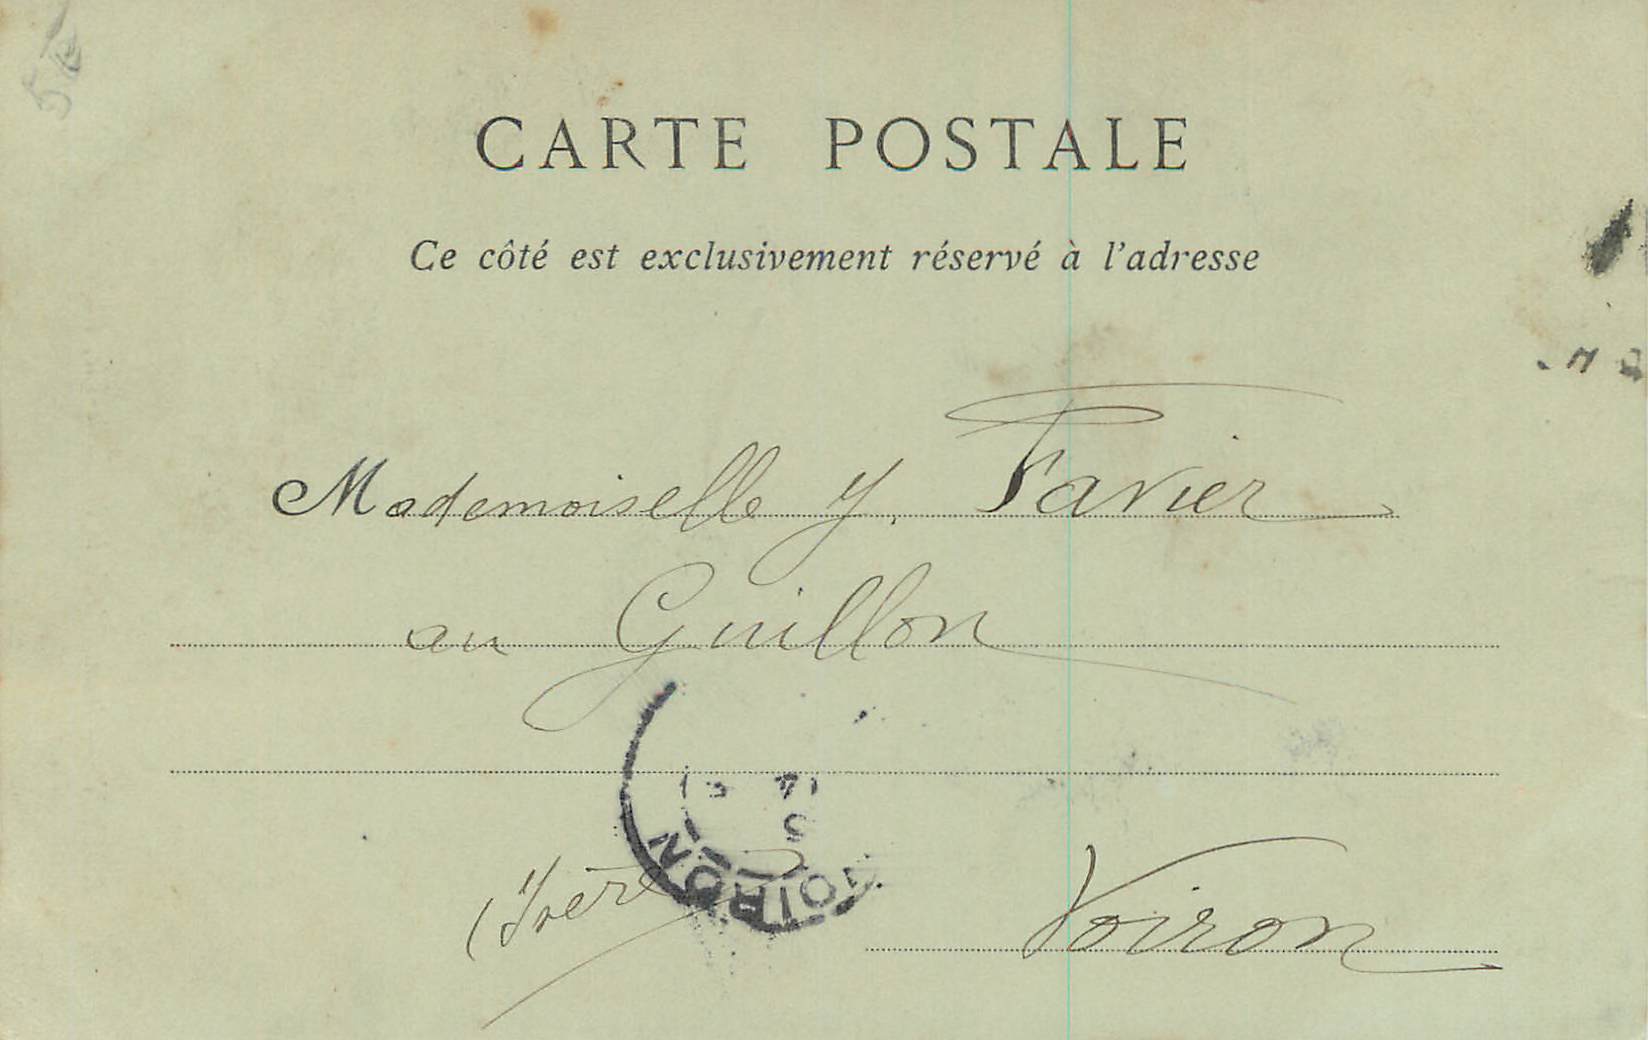 CARTE POSTALE
Ce côté est exclusivement réservé à l'adresse
Mademoiselle Y. Favier
au Guillon
(Isère)
Voiron
VOIRON